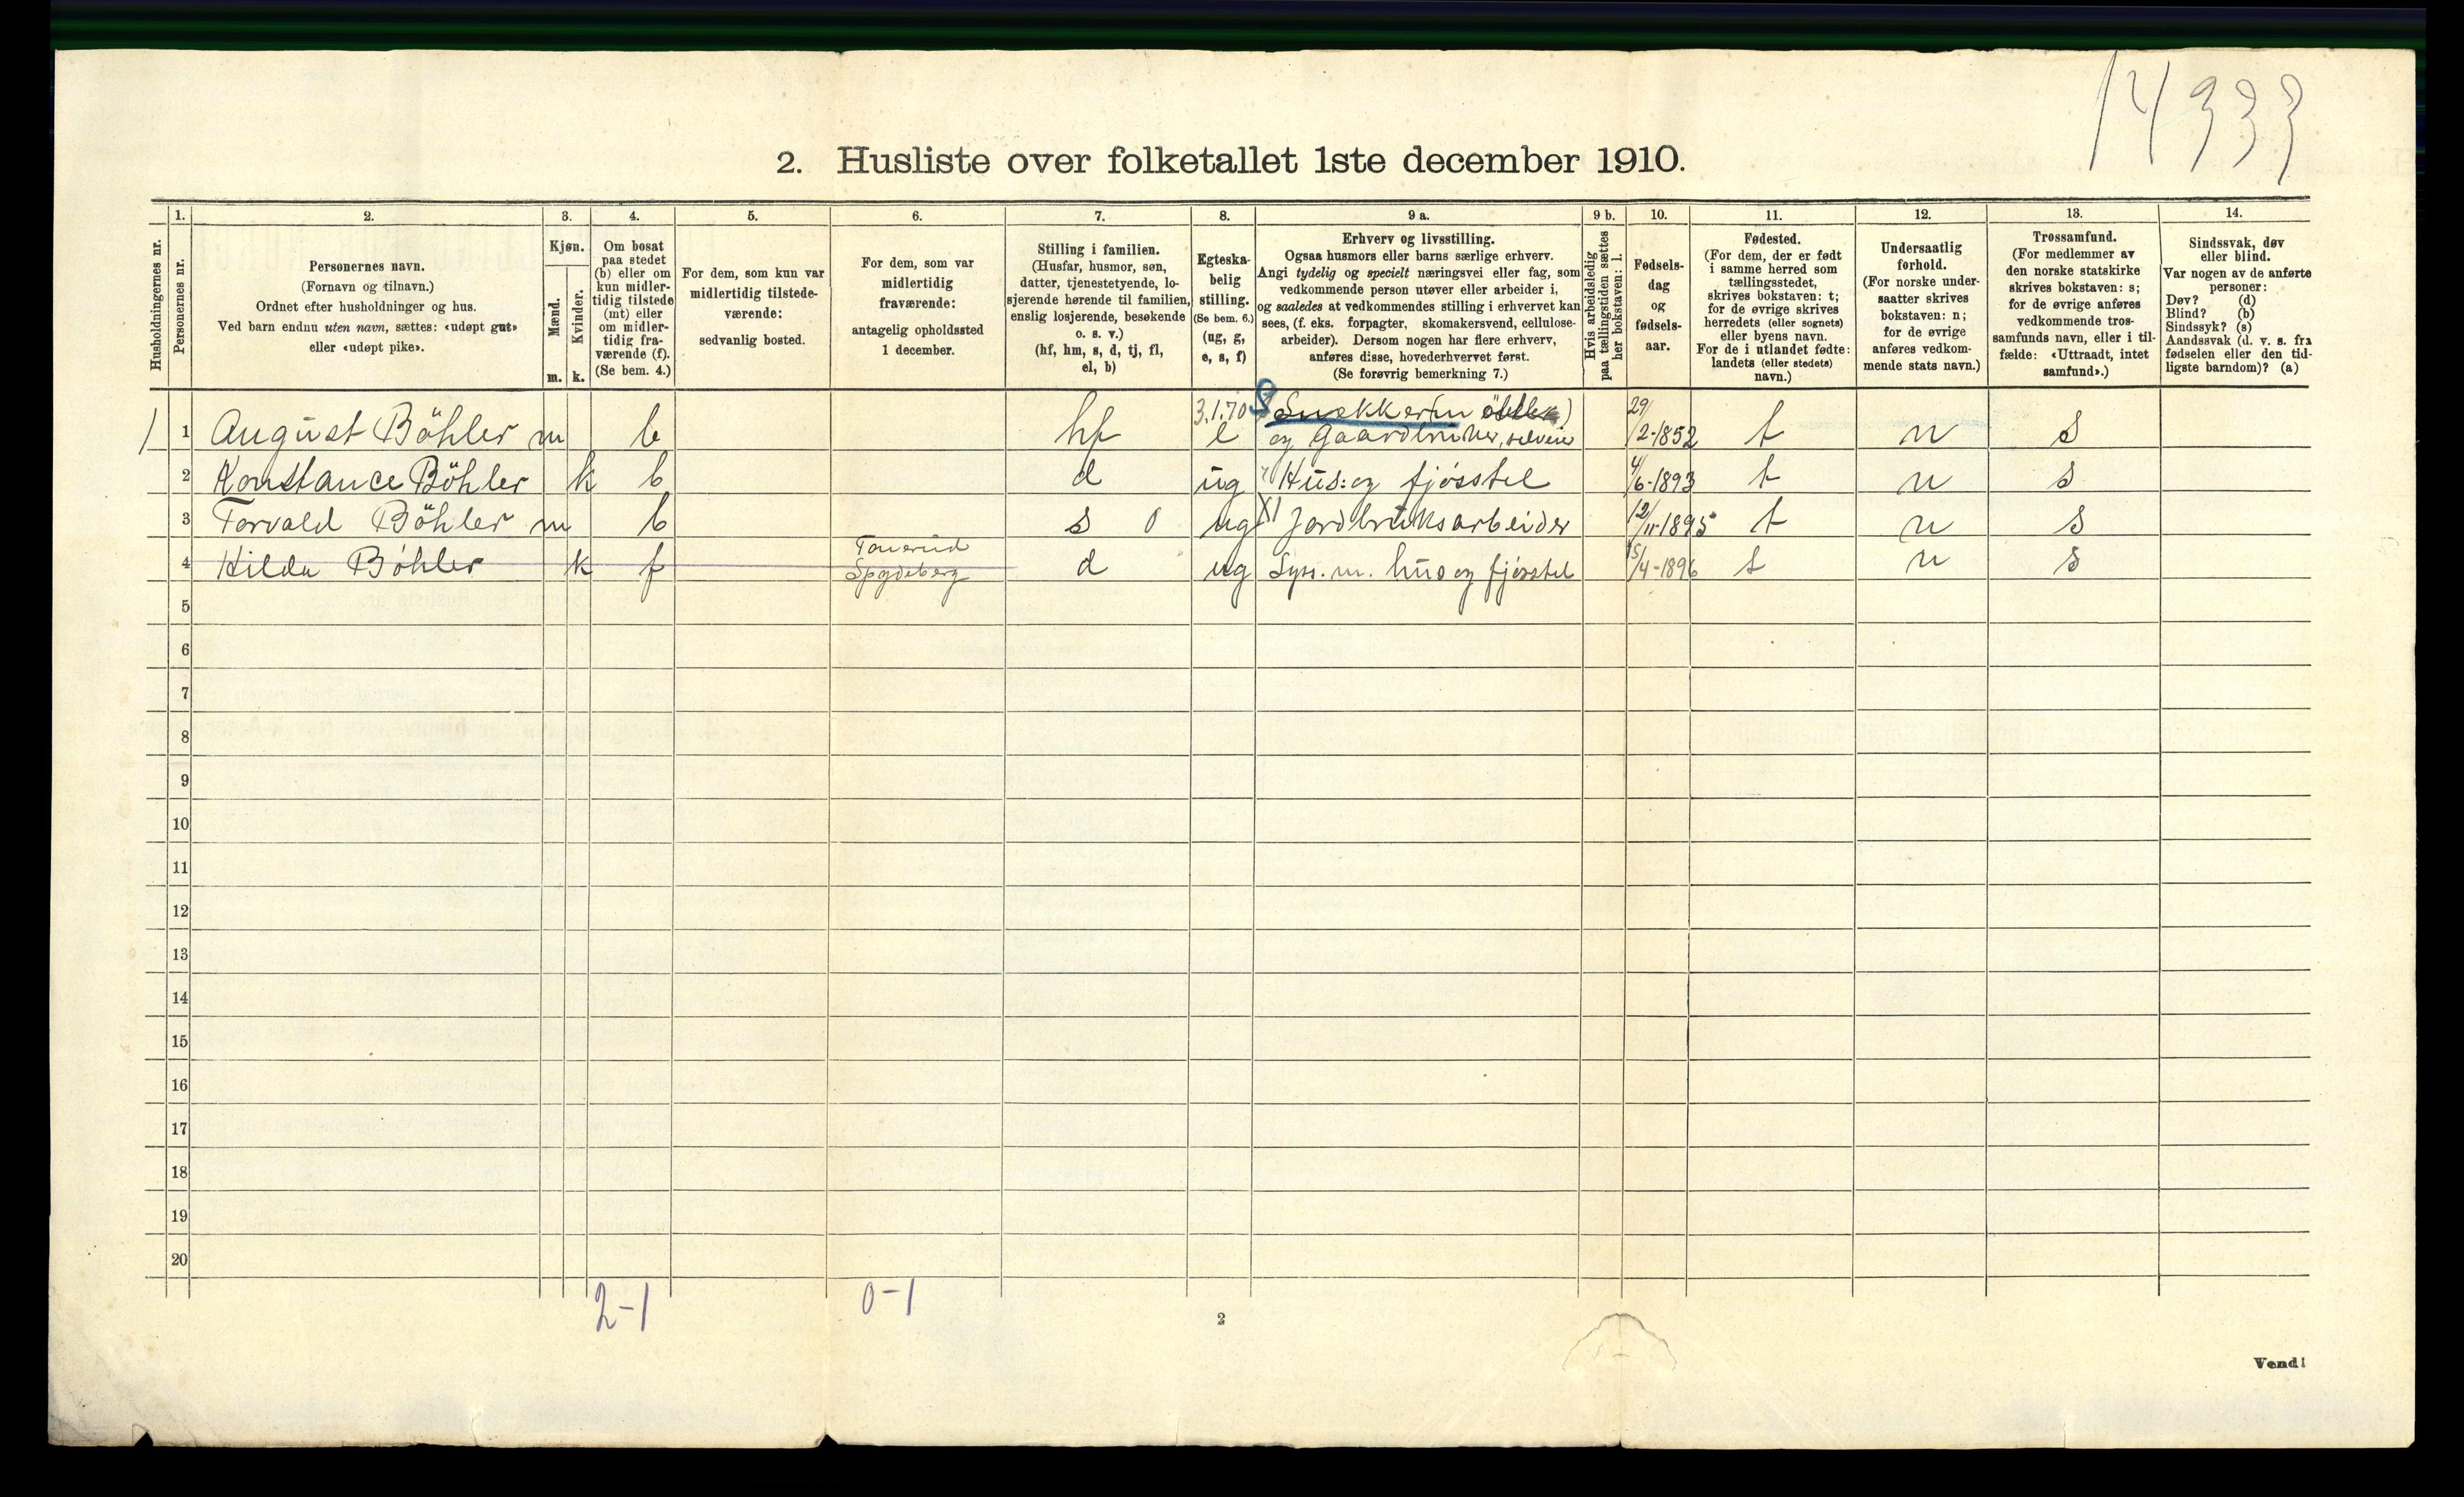 14933
2. Husliste over folketallet 1ste december 1910.
Husholdningernes nr.
1.
Personernes nr.
2.
Personernes navn.
(Fornavn og tilnavn.)
Ordnet efter husholdninger og hus.
Ved barn endnu uten navn, sættes: «udøpt gut»
eller «udøpt pike».
3.
Kjøn.
Mænd.
Kvinder.
m. k.
4.
Om bosat
paa stedet
(b) eller om
kun midler-
tidig tilstede
(mt) eller
om midler-
tidig fra-
værende (f).
(Se bem. 4.)
5.
For dem, som kun var
midlertidig tilstede-
værende:
sedvanlig bosted.
6.
For dem, som var
midlertidig
fraværende:
antagelig opholdssted
1 december.
7.
Stilling i familien.
(Husfar, husmor, søn,
datter, tjenestetyende, lo-
sjerende hørende til familien,
enslig losjerende, besøkende
o. s. v.)
(hf, hm, s, d, tj, fl,
el, b)
8.
Egteska-
belig
stilling.
(Se bem. 6.)
(ug, g,
e, s, f)
9 a.
Erhverv og livsstilling.
Ogsaa husmors eller barns særlige erhverv.
Angi tydelig og specielt næringsvei eller fag, som
vedkommende person utøver eller arbeider i,
og saaledes at vedkommendes stilling i erhvervet kan
sees, (f. eks. forpagter, skomakersvend, cellulose-
arbeider). Dersom nogen har flere erhverv,
anføres disse, hovederhvervet først.
(Se forøvrig bemerkning 7.)
9 b.
Hvis arbeidsledig
paa tællingstiden sættes
her bokstaven: l.
10.
Fødsels-
dag
og
fødsels-
aar.
11.
Fødested.
(For dem, der er født
i samme herred som
tællingsstedet,
skrives bokstaven: t;
for de øvrige skrives
herredets (eller sognets)
eller byens navn.
For de i utlandet fødte:
landets (eller stedets)
navn.)
12.
Undersaatlig
forhold.
(For norske under-
saatter skrives
bokstaven: n;
for de øvrige
anføres vedkom-
mende stats navn.)
13.
Trossamfund.
(For medlemmer av
den norske statskirke
skrives bokstaven: s;
for de øvrige anføres
vedkommende tros-
samfunds navn, eller i til-
fælde: «Uttraadt, intet
samfund».)
14.
Sindssvak, døv
eller blind.
Var nogen av de anførte
personer:
Døv? (d)
Blind? (b)
Sindssyk? (s)
Aandssvak (d. v. s. fra
fødselen eller den tid-
ligste barndom)? (a)
3.1.70 Snekker
1 1 August Böhler m b hf e og Gaardbruker, selveier 29/2-1852 t n s
2 Konstance Böhler k b d ug Hus: og fjösstel 4/6-1893 t n s
3 Torvald Böhler m b s 0 ug Jordbruksarbeider 12/11-1895 t n s
4 Hilda Böhler k f Spydeberg d ug Sys. m. hus og fjösstel 15/4-1896 t n s
5
6
7
8
9
10
11
12
13
14
15
16
17
18
19
20
2-1 0-1
2
Vend!